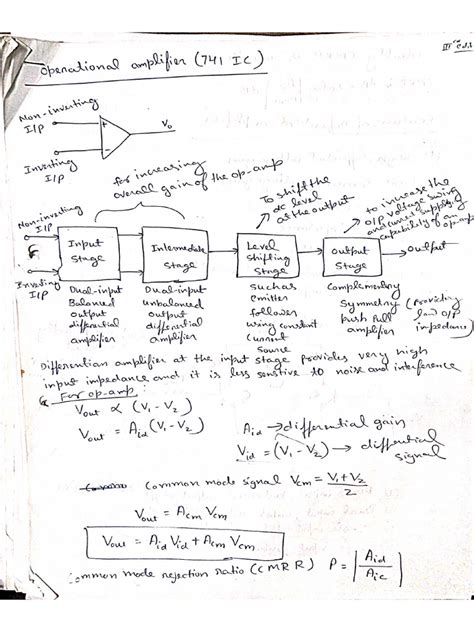 Operational amplifier (741 IC)
Non-inverting
I/P
+
Vo
Inverting
I/P
for increasing
overall gain of the op-amp
To shift the
dc level
at the output
to increase the
O/P voltage swing
and current supplying
capability of an
op-amp
Non-inverting
I/P
Inverting
I/P
Input
Stage
Intermediate
Stage
Level
Shifting
Stage
output
Stage
output
Dual-input
Balanced
output
differential
amplifier
Dual-input
unbalanced
output
differential
amplifier
such as
emitter
follower
using constant
current
source
Complementary
Symmetry
push pull
amplifier
(Providing
low O/P
impedance)
Differential amplifier at the input stage provides very high
input impedance and it is less sensitive to noise and interference
For op-amp
Vout ∝ (V1 - V2)
Vout = Aid (V1 - V2)
Aid → differential gain
Vid = (V1 - V2) → differential
signal
Common mode signal Vcm = (V1 + V2) / 2
Vout = Acm Vcm
Vout = Aid Vid + Acm Vcm
Common mode rejection ratio (CMRR) P = |Aid / Aic|